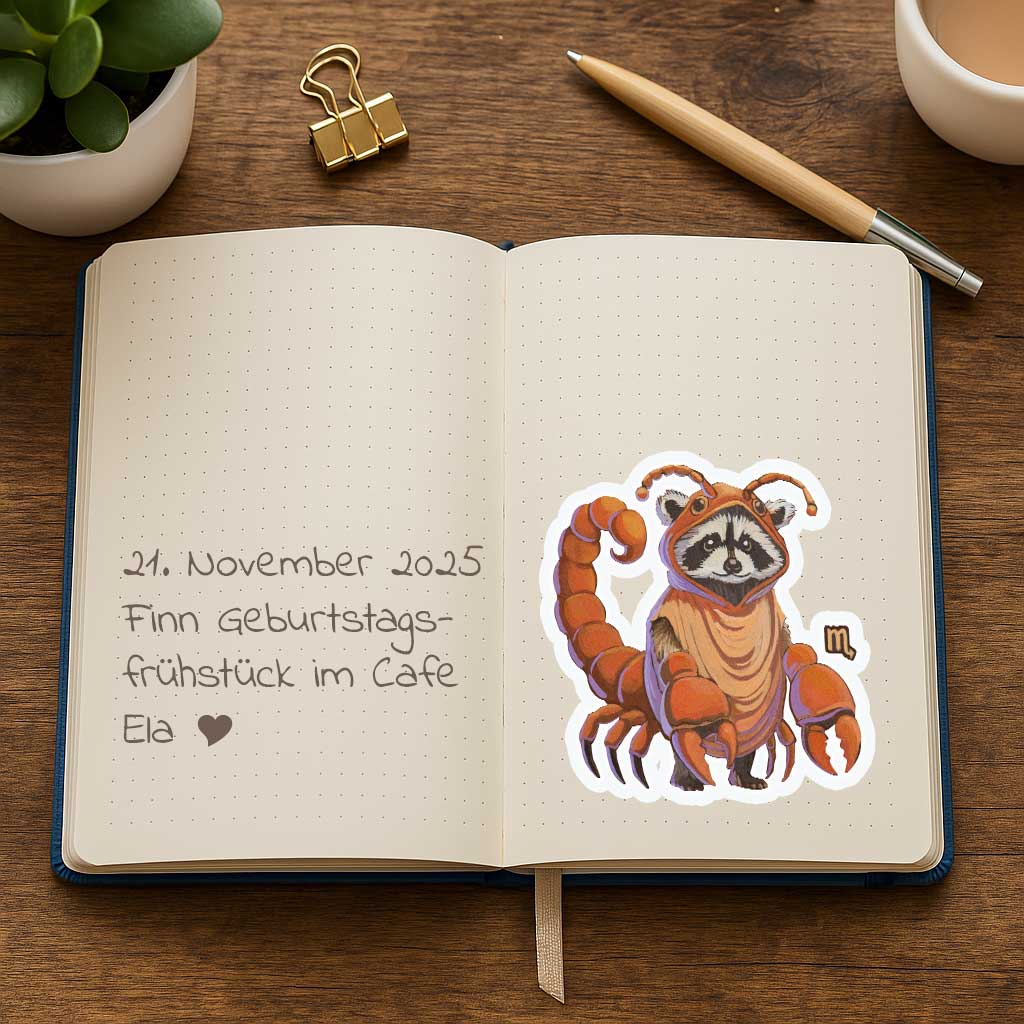 21. November 2025
Finn Geburtstags-
frühstück im Cafe
Ela ♥
♏